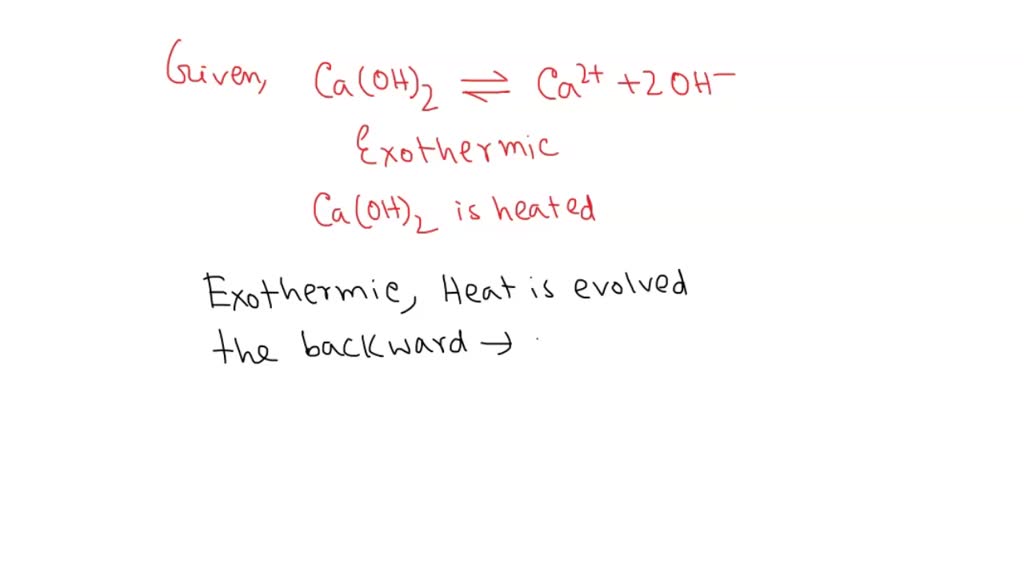 Given, Ca(OH)₂ ⇌ Ca²⁺ + 2OH⁻
Exothermic
Ca(OH)₂ is heated
Exothermic, Heat is evolved
the backward →